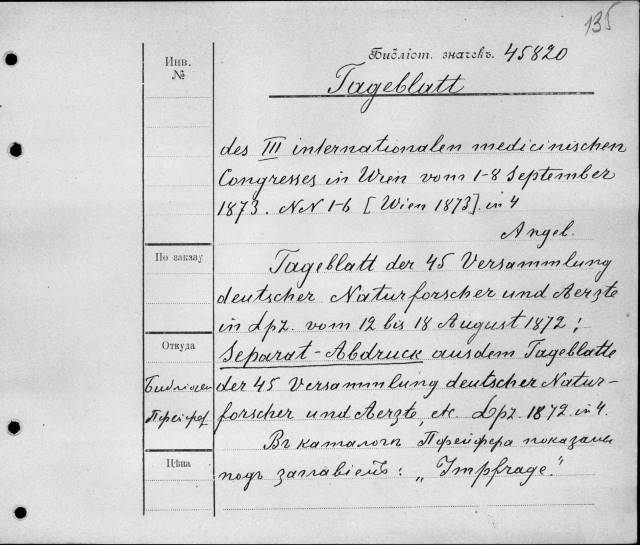 135
Библіот. значекъ. 45820
Инв.
№
Tageblatt
des III internationalen medicinischen
Congresses in Wien vom 1-8 September
1873. NN 1-6 [Wien 1873]. in 4
Angel.
По заказу
Tageblatt der 45 Versammlung
deutscher Naturforscher und Aerzte
in Lpz. vom 12 bis 18 August 1872;
Откуда
Separat-Abdruck aus dem Tageblatte
Библіотеч
der 45 Versammlung deutscher Natur-
Пфейфер
forscher und Aerzte, etc. Lpz. 1872. in 4.
Въ каталогѣ Пфейфера показаны
Цѣна
подъ заглавіемъ: „Impfrage."